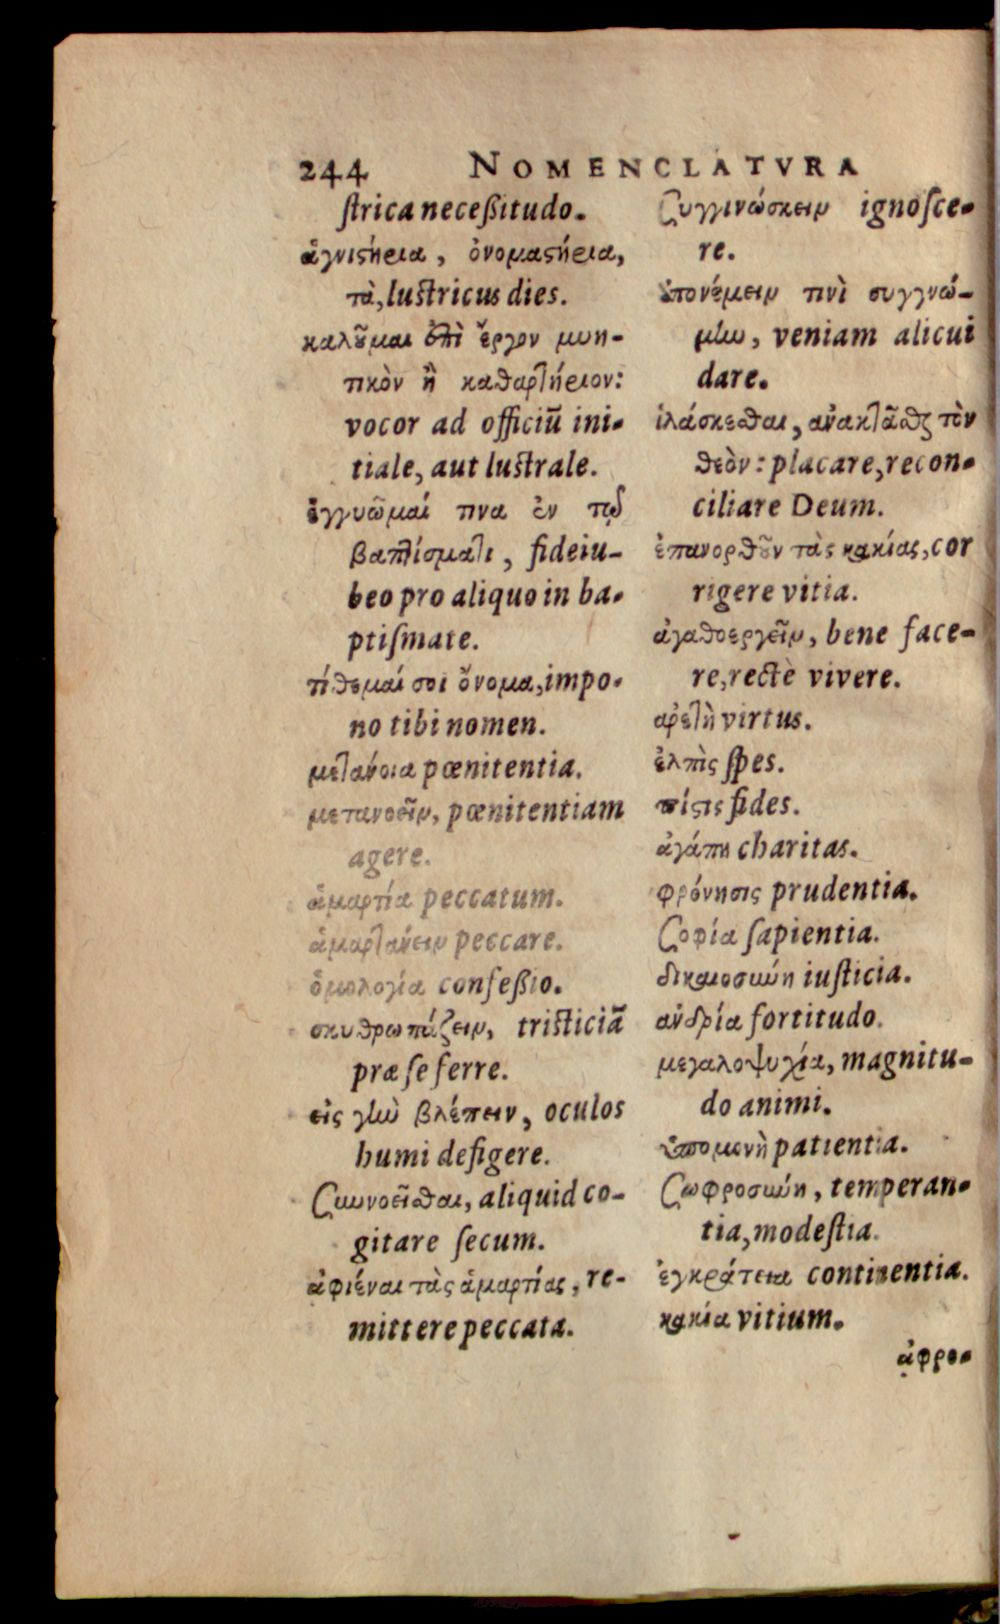 244 NOMENCLATVRA
ſtrica neceßitudo.
ἁγνιστήρια, ὀνομαστήρια,
τὰ, luſtricus dies.
καλοῦμαι ἐπὶ ἔργον μυη-
τικὸν ἢ καθαρτήριον:
vocor ad officiū ini-
tiale, aut luſtrale.
ἐγγυῶμαί τινα ἐν τῷ
βαπτίσματι, fideiu-
beo pro aliquo in ba-
ptiſmate.
τίθεμαί σοι ὄνομα, impo-
no tibi nomen.
μετάνοια pœnitentia.
μετανοεῖν, pœnitentiam
agere.
ἁμαρτία peccatum.
ἁμαρτάνειν peccare.
ὁμολογία confeßio.
σκυθρωπάζειν, triſticiã
præ ſe ferre.
εἰς γῆν βλέπειν, oculos
humi defigere.
συννοεῖσθαι, aliquid co-
gitare ſecum.
ἀφιέναι τὰς ἁμαρτίας, re-
mittere peccata.
συγγινώσκειν ignoſce-
re.
ἀπονέμειν τινὶ συγγνώ-
μην, veniam alicui
dare.
ἱλάσκεσθαι, ἀνακτᾶσθαι τὸν
θεὸν: placare, recon-
ciliare Deum.
ἐπανορθοῦν τὰς κακίας, cor
rigere vitia.
ἀγαθοεργεῖν, bene face-
re, rectè vivere.
ἀρετὴ virtus.
ἐλπὶς ſpes.
πίστις fides.
ἀγάπη charitas.
φρόνησις prudentia.
σοφία ſapientia.
δικαιοσύνη iuſticia.
ἀνδρία fortitudo.
μεγαλοψυχία, magnitu-
do animi.
ὑπομονὴ patientia.
σωφροσύνη, temperan-
tia, modeſtia.
ἐγκράτεια continentia.
κακία vitium.
ἀφρο-